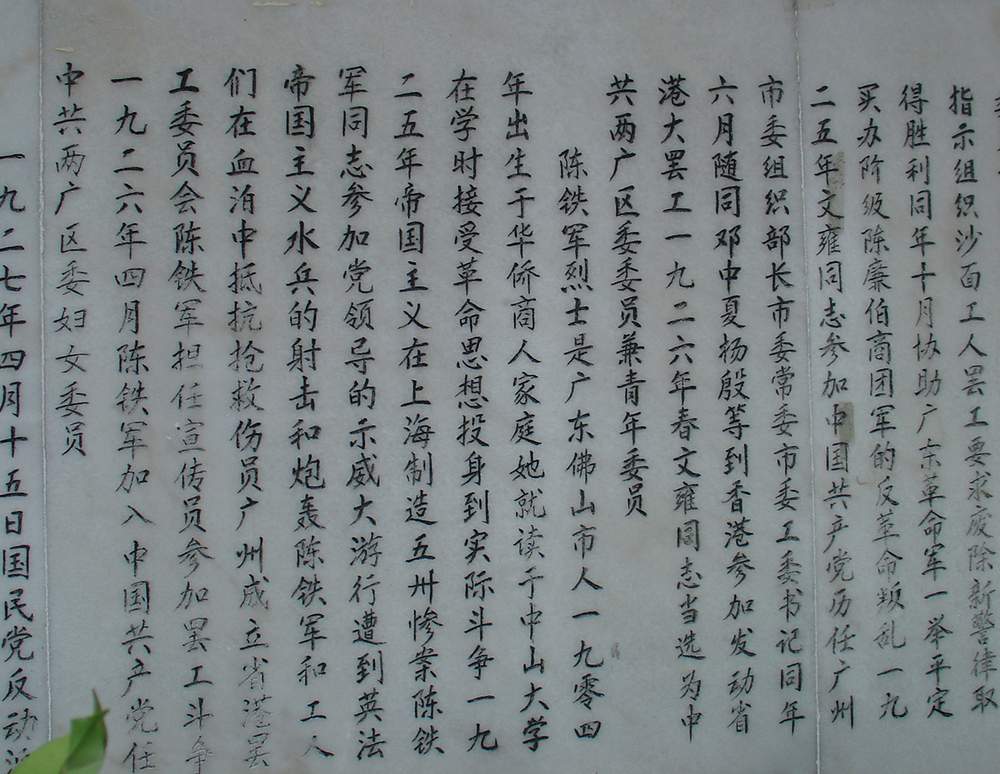 指示组织沙面工人罢工要求废除新警律取
得胜利同年十月协助广东革命军一举平定
买办阶级陈廉伯商团军的反革命叛乱一九
二五年文雍同志参加中国共产党历任广州
市委组织部长市委常委市委工委书记同年
六月随同邓中夏杨殷等到香港参加发动省
港大罢工一九二六年春文雍同志当选为中
共两广区委委员兼青年委员
陈铁军烈士是广东佛山市人一九零四
年出生于华侨商人家庭她就读于中山大学
在学时接受革命思想投身到实际斗争一九
二五年帝国主义在上海制造五卅惨案陈铁
军同志参加党领导的示威大游行遭到英法
帝国主义水兵的射击和炮轰陈铁军和工人
们在血泊中抵抗抢救伤员广州成立省港罢
工委员会陈铁军担任宣传员参加罢工斗争
一九二六年四月陈铁军加入中国共产党任
中共两广区委妇女委员
一九二七年四月十五日国民党反动派